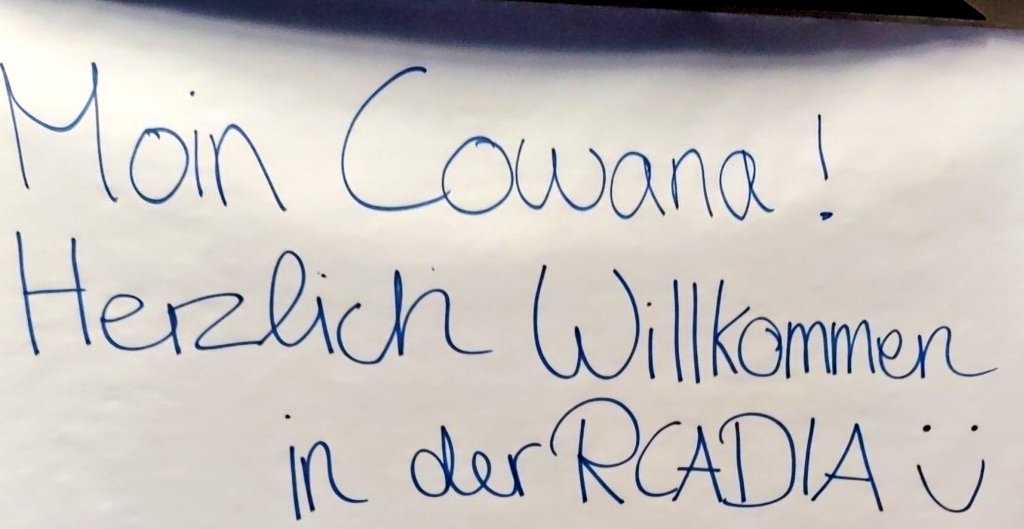 Moin Cowana!
Herzlich Willkommen
in der RCADIA ü